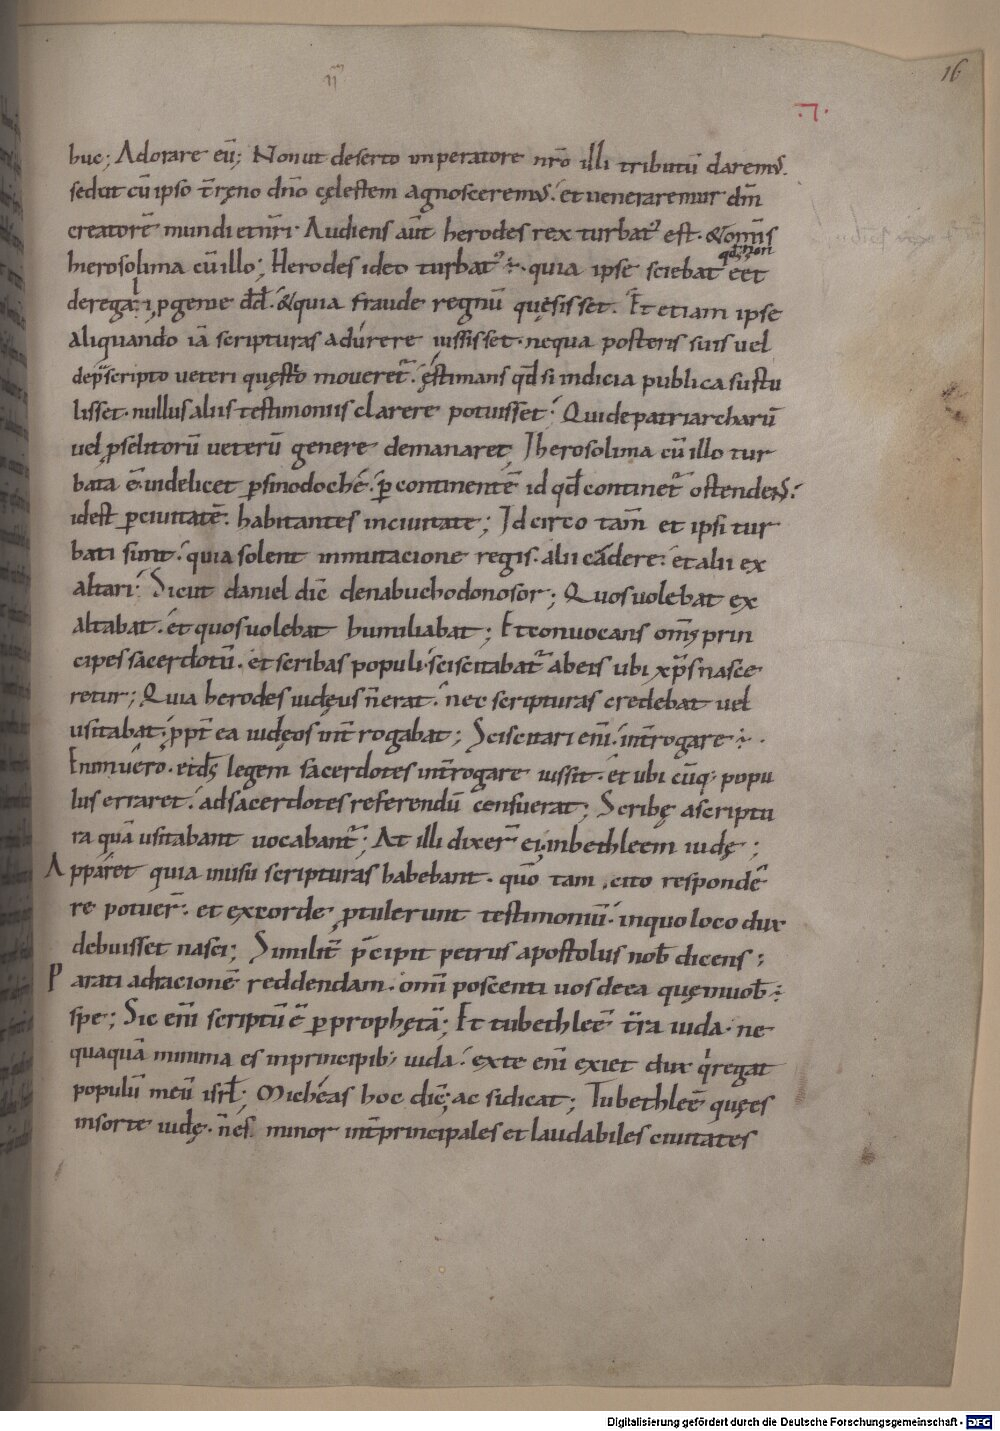 16
buc; Adorare eū; Non ut deserto imperatore nr̄o illi tributū daremꝰ.
sed ut cū ipso t̄ręno dn̄o cęlestem agnosceremꝰ. et veneraremur dm̄
creatorē mundi et nr̄i. Audiens aūt herodes rex turbatꝰ est. & om̄is
hierosolima cū illo; Herodes ideo turbatꝰ ÷. quia ipse sciebat qđ non eēt
de regali ꝓgenie đđ. & quia fraude regnū quęsisset. Et etiam ipse
aliquando iā scripturas adurere iussisset. nequa posteris suis vel
de p̄scripto veteri quęstio moveret᷑. ęstimans qđ si indicia publica sustu
lisset. nullus aliis testimoniis clarere potuisset. Qui de patriarcharū
vel ꝓselitorū veterū genere demanaret, Iherosolima cū illo tur
bata ē. videlicet ꝑ sinodochē. ꝑ continentē id qđ continet᷑ ostendens.
idest ꝑ civitatē. habitantes in civitate; Idcirco tam̄ et ipsi tur
bati sunt. quia solent inmutacione regis. alii cadere. et alii ex
altari. Sicut daniel dic̄ de nabuchodonosor; Quos volebat ex
altabat. et quos volebat humiliabat; Et convocans om̄s prin
cipes sacerdotū. et scribas populi. sciscitabat᷑ ab eis ubi xp̄s nasce
retur; Quia herodes iudęus n̄ erat. nec scripturas credebat vel
usitabat. ꝓpt̄ ea iudęos int̄rogabat; Sciscitari eni̅. int̄rogare ÷.
Enimvero. et ds̄ legem sacerdotes int̄rogare iussit. et ubi cūq; popu
lus erraret. ad sacerdotes referendū censuerat; Scribę a scriptu
ra quā usitabant vocabant᷑; At illi dixer̄ ei, in bethleem iudę;
Apparet quia in usu scripturas habebant. quō tam cito respondē
re potuer̄. et ex corde ꝓtulerunt testimoniū. in quo loco dux
debuisset nasci; Similit̄ p̄cipit petrus apostolus nob̄ dicens;
Parati ad racionē reddendam. om̄i poscenti vos de ea quę in vob̄ ÷
spe; Sic eni̅ scriptū ē ꝑ prophętā; Et tu bethleē t̄ra iuda. ne
quaquā minima es in principib; iuda. ex te eni̅ exiet dux q̇ regat
populū meū isrl̄; Micheas hoc dic̄, ac si dicat; Tu bethleē quę es
in sorte iudę. n̄ es minor int̄ principales et laudabiles civitates
Digitalisierung gefördert durch die Deutsche Forschungsgemeinschaft - DFG